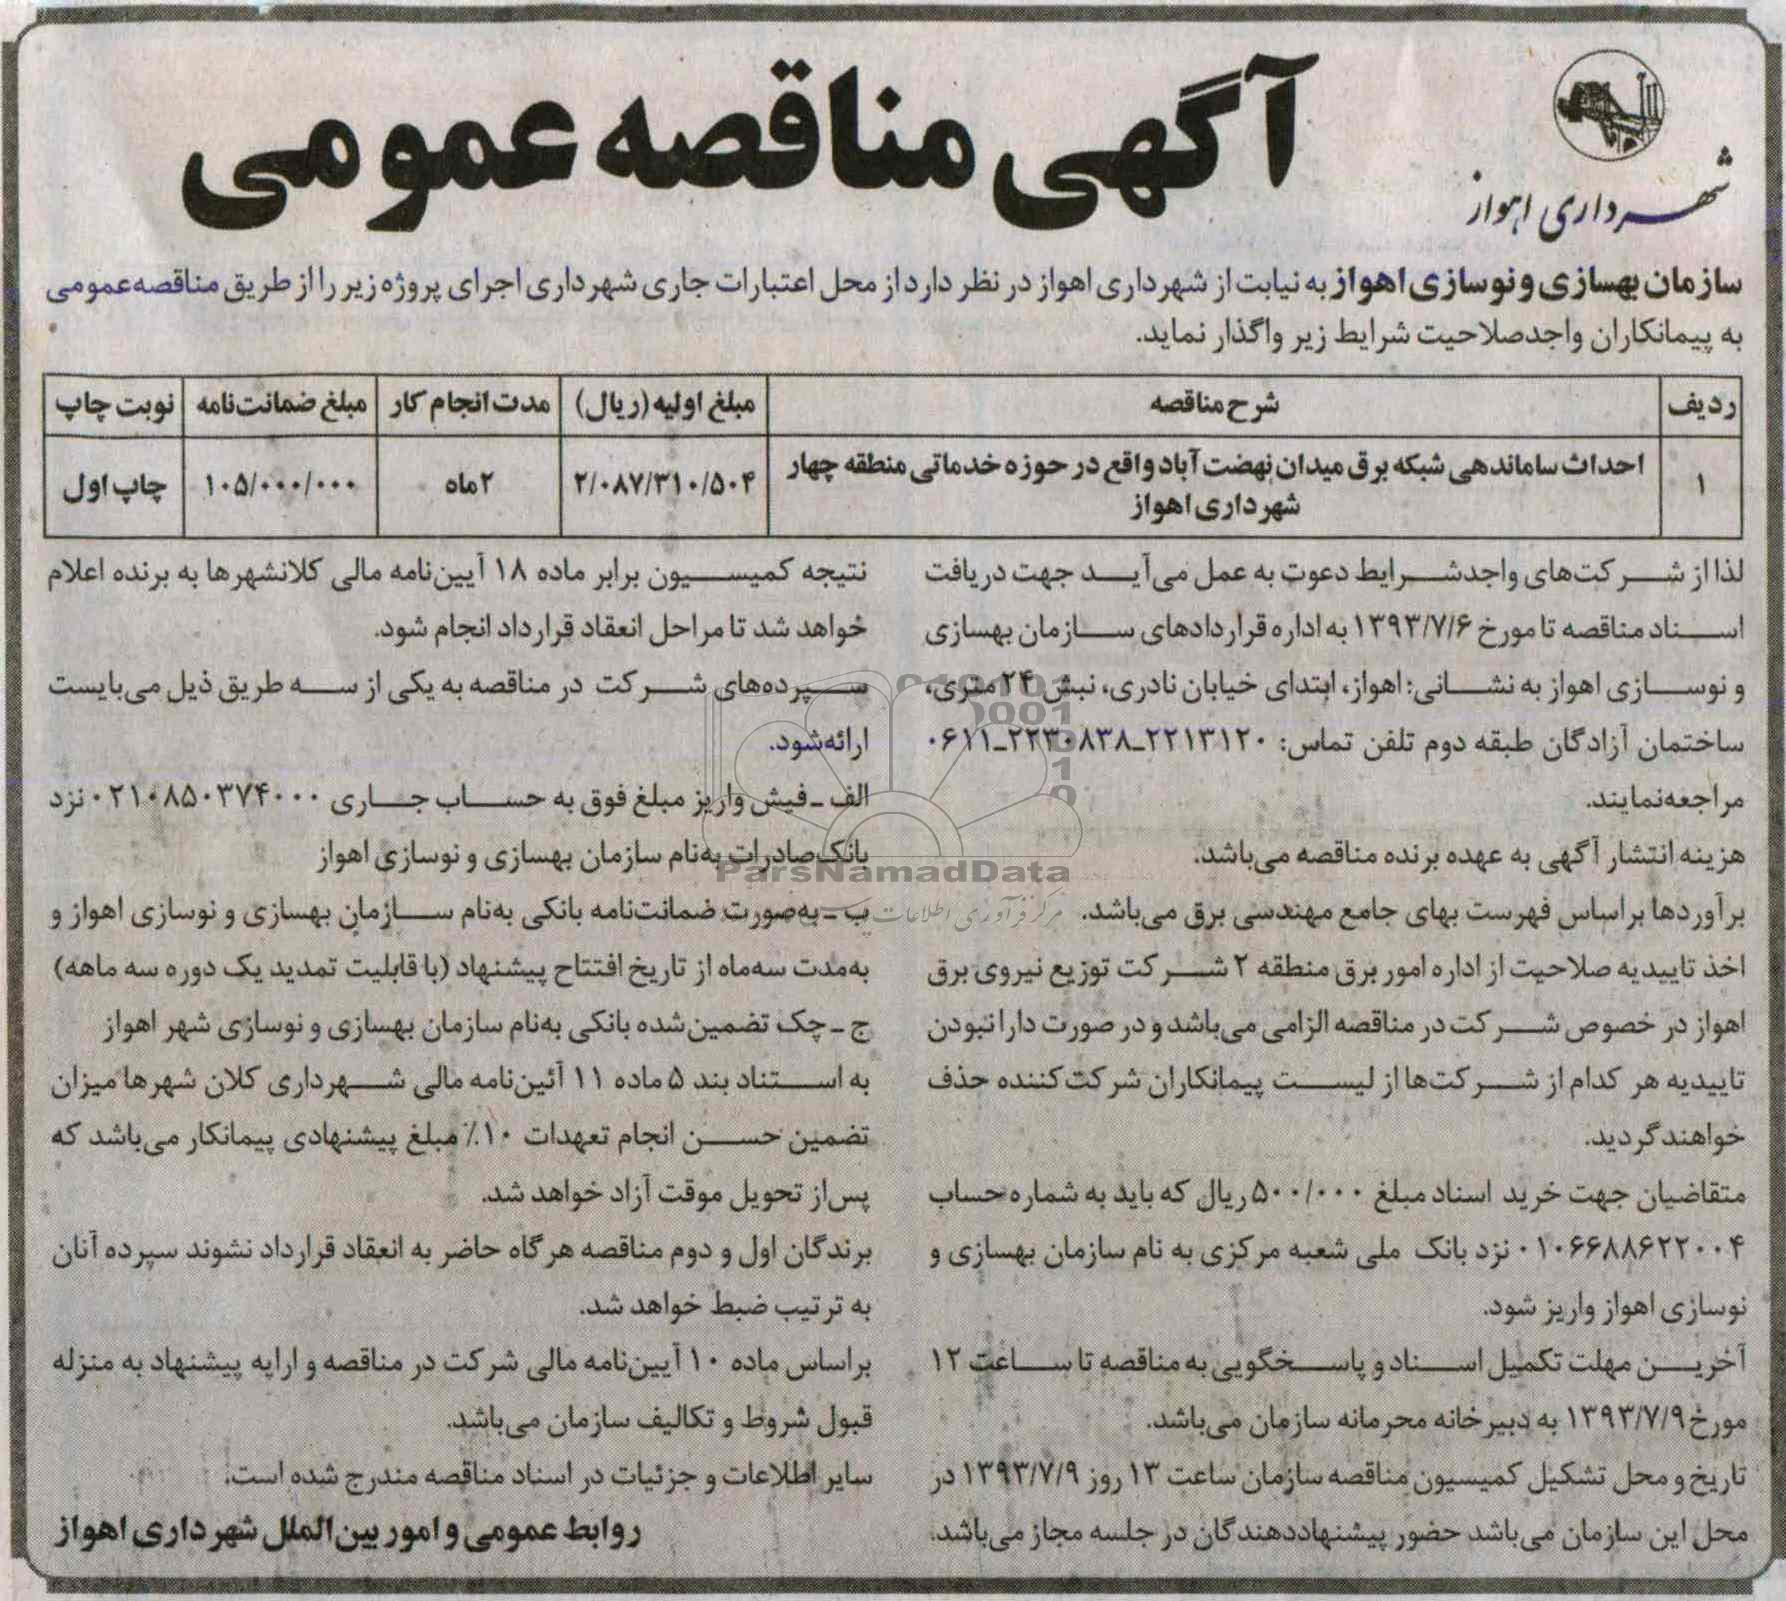 شهرداری اهواز
آگهی مناقصه عمومی
سازمان بهسازی و نوسازی اهواز به نیابت از شهرداری اهواز در نظر دارد از محل اعتبارات جاری شهرداری اجرای پروژه زیر را از طریق مناقصه عمومی
به پیمانکاران واجدصلاحیت شرایط زیر واگذار نماید.
ردیف | شرح مناقصه | مبلغ اولیه (ریال) | مدت انجام کار | مبلغ ضمانت‌نامه | نوبت چاپ
۱ | احداث ساماندهی شبکه برق میدان نهضت آباد واقع در حوزه خدماتی منطقه چهار | ۲/۰۸۷/۳۱۰/۵۰۴ | ۲ ماه | ۱۰۵/۰۰۰/۰۰۰ | چاپ اول
شهرداری اهواز
لذا از شرکت‌های واجدشرایط دعوت به عمل می‌آید جهت دریافت
اسناد مناقصه تا مورخ ۱۳۹۳/۷/۶ به اداره قراردادهای سازمان بهسازی
و نوسازی اهواز به نشانی: اهواز، ابتدای خیابان نادری، نبش ۲۴ متری،
ساختمان آزادگان طبقه دوم تلفن تماس: ۲۲۱۳۱۲۰ـ۲۲۳۰۸۳۸ـ۰۶۱۱
مراجعه‌نمایند.
هزینه انتشار آگهی به عهده برنده مناقصه می‌باشد.
برآوردها براساس فهرست بهای جامع مهندسی برق می‌باشد.
اخذ تاییدیه صلاحیت از اداره امور برق منطقه ۲ شرکت توزیع نیروی برق
اهواز در خصوص شرکت در مناقصه الزامی می‌باشد و در صورت دارا نبودن
تاییدیه هر کدام از شرکت‌ها از لیست پیمانکاران شرکت‌کننده حذف
خواهند گردید.
متقاضیان جهت خرید اسناد مبلغ ۵۰۰/۰۰۰ ریال که باید به شماره حساب
۰۱۰۶۶۸۸۶۲۲۰۰۴ نزد بانک ملی شعبه مرکزی به نام سازمان بهسازی و
نوسازی اهواز واریز شود.
آخرین مهلت تکمیل اسناد و پاسخگویی به مناقصه تا ساعت ۱۲
مورخ ۱۳۹۳/۷/۹ به دبیرخانه محرمانه سازمان می‌باشد.
تاریخ و محل تشکیل کمیسیون مناقصه سازمان ساعت ۱۳ روز ۱۳۹۳/۷/۹ در
محل این سازمان می‌باشد حضور پیشنهاددهندگان در جلسه مجاز می‌باشد.
نتیجه کمیسیون برابر ماده ۱۸ آیین‌نامه مالی کلانشهرها به برنده اعلام
خواهد شد تا مراحل انعقاد قرارداد انجام شود.
سپرده‌های شرکت در مناقصه به یکی از سه طریق ذیل می‌بایست
ارائه‌شود.
الف ـ فیش واریز مبلغ فوق به حساب جاری ۰۲۱۰۸۵۰۳۷۴۰۰۰ نزد
بانک صادرات به‌نام سازمان بهسازی و نوسازی اهواز
ب ـ به‌صورت ضمانت‌نامه بانکی به‌نام سازمان بهسازی و نوسازی اهواز و
به‌مدت سه‌ماه از تاریخ افتتاح پیشنهاد (با قابلیت تمدید یک دوره سه ماهه)
ج ـ چک تضمین‌شده بانکی به‌نام سازمان بهسازی و نوسازی شهر اهواز
به استناد بند ۵ ماده ۱۱ آئین‌نامه مالی شهرداری کلان شهرها میزان
تضمین حسن انجام تعهدات ۱۰٪ مبلغ پیشنهادی پیمانکار می‌باشد که
پس‌از تحویل موقت آزاد خواهد شد.
برندگان اول و دوم مناقصه هرگاه حاضر به انعقاد قرارداد نشوند سپرده آنان
به ترتیب ضبط خواهد شد.
براساس ماده ۱۰ آیین‌نامه مالی شرکت در مناقصه و ارایه پیشنهاد به منزله
قبول شروط و تکالیف سازمان می‌باشد.
سایر اطلاعات و جزئیات در اسناد مناقصه مندرج شده است.
روابط عمومی و امور بین‌الملل شهرداری اهواز
ParsNamadData
مرکز فرآوری اطلاعات